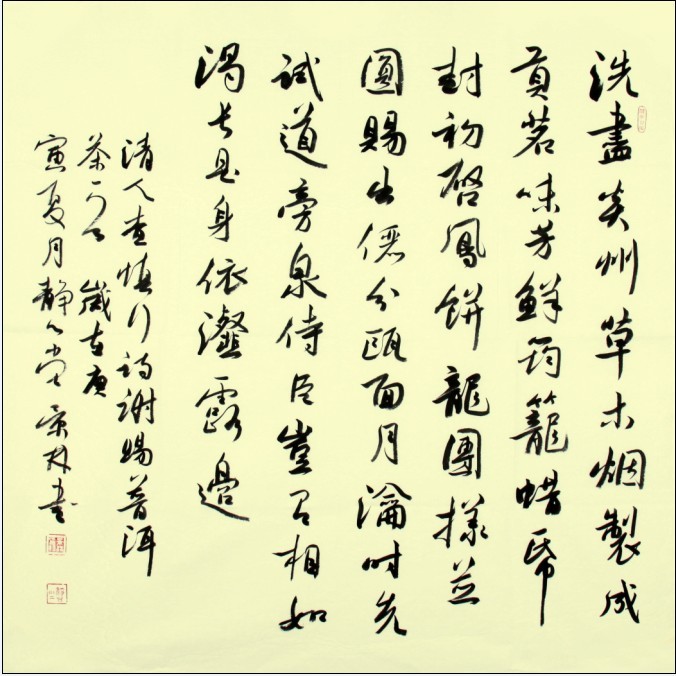 洗盡炎州草木烟製成
貢茗味芳鮮筠籠蜡帋
封初啓鳳餅龍團樣並
圓賜出儼分甌面月瀹時先
試道旁泉侍臣豈有相如
渴長是身依瀣露邊
清人查慎行詩謝賜普洱
茶一首 歲在庚
寅夏月靜心堂景林書